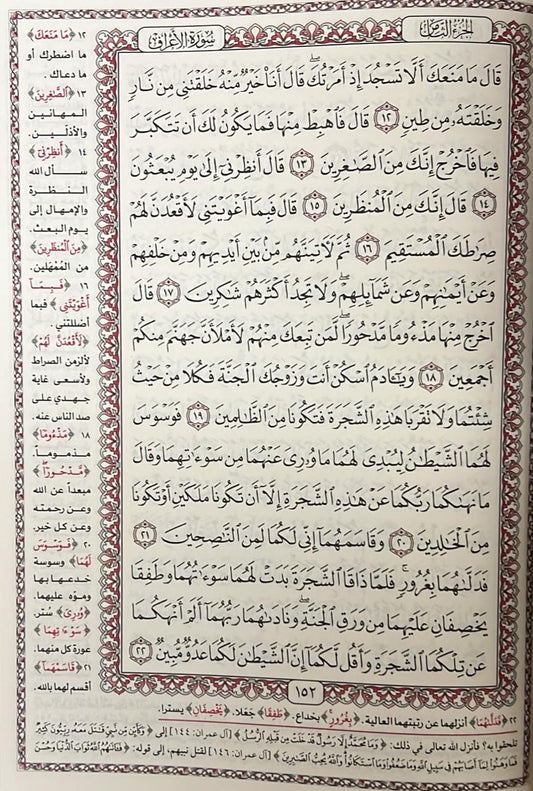 الجزء الثامن
سورة الأعراف
قَالَ مَا مَنَعَكَ أَلَّا تَسْجُدَ إِذْ أَمَرْتُكَ ۖ قَالَ أَنَا۠ خَيْرٌ مِّنْهُ خَلَقْتَنِى مِن نَّارٍ
وَخَلَقْتَهُۥ مِن طِينٍ ١٢ قَالَ فَٱهْبِطْ مِنْهَا فَمَا يَكُونُ لَكَ أَن تَتَكَبَّرَ
فِيهَا فَٱخْرُجْ إِنَّكَ مِنَ ٱلصَّٰغِرِينَ ١٣ قَالَ أَنظِرْنِىٓ إِلَىٰ يَوْمِ يُبْعَثُونَ
١٤ قَالَ إِنَّكَ مِنَ ٱلْمُنظَرِينَ ١٥ قَالَ فَبِمَآ أَغْوَيْتَنِى لَأَقْعُدَنَّ لَهُمْ
صِرَٰطَكَ ٱلْمُسْتَقِيمَ ١٦ ثُمَّ لَءَاتِيَنَّهُم مِّنۢ بَيْنِ أَيْدِيهِمْ وَمِنْ خَلْفِهِمْ
وَعَنْ أَيْمَٰنِهِمْ وَعَن شَمَآئِلِهِمْ ۖ وَلَا تَجِدُ أَكْثَرَهُمْ شَٰكِرِينَ ١٧ قَالَ
ٱخْرُجْ مِنْهَا مَذْءُومًا مَّدْحُورًا ۖ لَّمَن تَبِعَكَ مِنْهُمْ لَأَمْلَأَنَّ جَهَنَّمَ مِنكُمْ
أَجْمَعِينَ ١٨ وَيَٰٓـَٔادَمُ ٱسْكُنْ أَنتَ وَزَوْجُكَ ٱلْجَنَّةَ فَكُلَا مِنْ حَيْثُ
شِئْتُمَا وَلَا تَقْرَبَا هَٰذِهِ ٱلشَّجَرَةَ فَتَكُونَا مِنَ ٱلظَّٰلِمِينَ ١٩ فَوَسْوَسَ
لَهُمَا ٱلشَّيْطَٰنُ لِيُبْدِىَ لَهُمَا مَا وُۥرِىَ عَنْهُمَا مِن سَوْءَٰتِهِمَا وَقَالَ
مَا نَهَىٰكُمَا رَبُّكُمَا عَنْ هَٰذِهِ ٱلشَّجَرَةِ إِلَّآ أَن تَكُونَا مَلَكَيْنِ أَوْ تَكُونَا
مِنَ ٱلْخَٰلِدِينَ ٢٠ وَقَاسَمَهُمَآ إِنِّى لَكُمَا لَمِنَ ٱلنَّٰصِحِينَ ٢١
فَدَلَّىٰهُمَا بِغُرُورٍ ۚ فَلَمَّا ذَاقَا ٱلشَّجَرَةَ بَدَتْ لَهُمَا سَوْءَٰتُهُمَا وَطَفِقَا
يَخْصِفَانِ عَلَيْهِمَا مِن وَرَقِ ٱلْجَنَّةِ ۖ وَنَادَىٰهُمَا رَبُّهُمَآ أَلَمْ أَنْهَكُمَا
عَن تِلْكُمَا ٱلشَّجَرَةِ وَأَقُل لَّكُمَآ إِنَّ ٱلشَّيْطَٰنَ لَكُمَا عَدُوٌّ مُّبِينٌ ٢٢
١٥٢
١٢ ﴿مَا مَنَعَكَ﴾
ما اضطرك أو
ما دعاك.
١٣ ﴿ٱلصَّٰغِرِينَ﴾
المهانين
والأذلين.
١٤ ﴿أَنظِرْنِىٓ﴾
سأل الله
النظرة
والإمهال إلى
يوم البعث.
﴿مِنَ ٱلْمُنظَرِينَ﴾
من الممهلين.
١٦ ﴿فَبِمَآ
أَغْوَيْتَنِى﴾ فبما
أضللتني.
﴿لَأَقْعُدَنَّ لَهُمْ﴾
لألزمن الصراط
ولأسعى غاية
جهدي على
صد الناس عنه.
١٨ ﴿مَذْءُومًا﴾
مذموماً.
﴿مَّدْحُورًا﴾
مبعداً عن الله
وعن رحمته
وعن كل خير.
٢٠ ﴿فَوَسْوَسَ
لَهُمَا﴾ وسوسة
خدعها بها
وموّه عليهما.
﴿وُۥرِىَ﴾ سُتر.
﴿سَوْءَٰتِهِمَا﴾
عورة كل منهما.
٢١ ﴿وَقَاسَمَهُمَآ﴾
أقسم لهما بالله.
٢٢ ﴿فَدَلَّىٰهُمَا﴾ أنزلهما عن رتبتهما العالية. ﴿بِغُرُورٍ﴾ بخداع. ﴿طَفِقَا﴾ جَعَلا. ﴿يَخْصِفَانِ﴾ يسترا.
تلحقوا به؟ فأنزل الله تعالى في ذلك: ﴿وَمَا مُحَمَّدٌ إِلَّا رَسُولٌ قَدْ خَلَتْ مِن قَبْلِهِ ٱلرُّسُلُ﴾ [آل عمران: ١٤٤] إلى ﴿وَكَأَيِّن مِّن نَّبِىٍّ قَٰتَلَ مَعَهُۥ رِبِّيُّونَ كَثِيرٌ
فَمَا وَهَنُوا۟ لِمَآ أَصَابَهُمْ فِى سَبِيلِ ٱللَّهِ وَمَا ضَعُفُوا۟ وَمَا ٱسْتَكَانُوا۟ وَٱللَّهُ يُحِبُّ ٱلصَّٰبِرِينَ﴾ [آل عمران: ١٤٦] لقتل نبيهم، إلى قوله: ﴿فَـَٔاتَىٰهُمُ ٱللَّهُ ثَوَابَ ٱلدُّنْيَا وَحُسْنَ